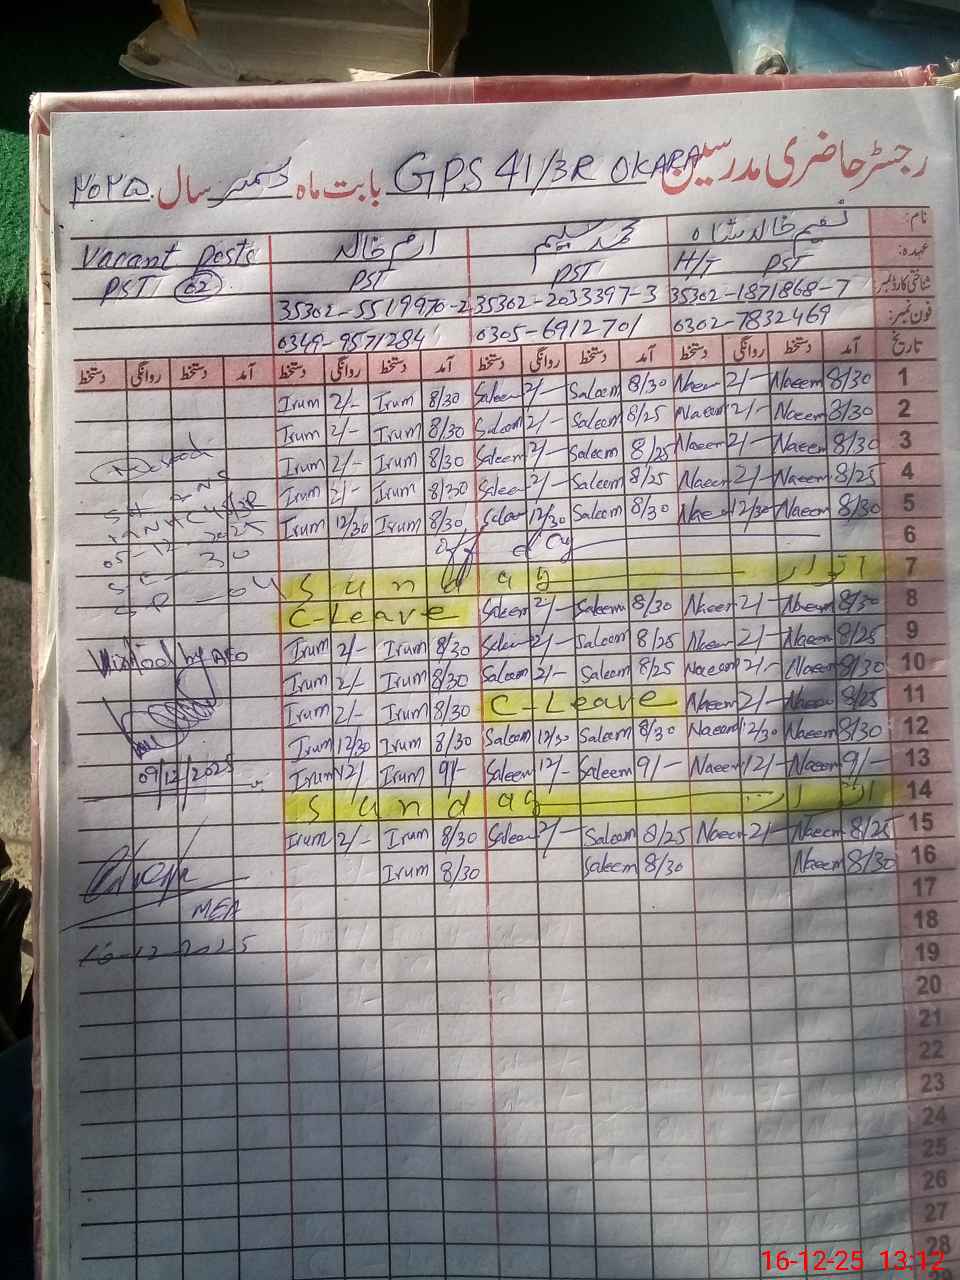 رجسٹر حاضری مدرسین GPS 41/3R OKARA بابت ماہ دسمبر سال ۲۰۲۵
نام: نعیم خالد شاہ محمد سلیم ارم خالد Vacant Posts
عہدہ: H/T PST PST PST PST 02
شناختی کارڈ نمبر 35302-1871868-7 35302-2033397-3 35302-5519970-2
فون نمبر: 0302-7832469 0305-6912701 0349-9571284
تاریخ آمد دستخط روانگی دستخط آمد دستخط روانگی دستخط آمد دستخط روانگی دستخط آمد دستخط روانگی دستخط
Irum 2/- Irum 8/30 Saleem 2/- Saleem 8/30 Naeem 2/- Naeem 8/30 1
Irum 2/- Irum 8/30 Saleem 2/- Saleem 8/25 Naeem 2/- Naeem 8/30 2
Irum 2/- Irum 8/30 Saleem 2/- Saleem 8/25 Naeem 2/- Naeem 8/30 3
Irum 2/- Irum 8/30 Saleem 2/- Saleem 8/25 Naeem 2/- Naeem 8/25 4
Irum 12/30 Irum 8/30 Saleem 12/30 Saleem 8/30 Naeem 12/30 Naeem 8/30 5
6
Sunday اتوار 7
C-Leave Saleem 2/- Saleem 8/30 Naeem 2/- Naeem 8/30 8
Irum 2/- Irum 8/30 Saleem 2/- Saleem 8/25 Naeem 2/- Naeem 8/25 9
Irum 2/- Irum 8/30 Saleem 2/- Saleem 8/25 Naeem 2/- Naeem 8/30 10
Irum 2/- Irum 8/30 C-Leave Naeem 2/- Naeem 8/25 11
Irum 12/30 Irum 8/30 Saleem 12/30 Saleem 8/30 Naeem 12/30 Naeem 8/30 12
Irum 12/- Irum 9/- Saleem 12/- Saleem 9/- Naeem 12/- Naeem 9/- 13
Sunday اتوار 14
Irum 2/- Irum 8/30 Saleem 2/- Saleem 8/25 Naeem 2/- Naeem 8/25 15
Irum 8/30 Saleem 8/30 Naeem 8/30 16
17
18
19
20
21
22
23
24
25
26
27
28
05-12-2025
Visited by AEO
09/12/2025
MEA
16-12-2025
16-12-25 13:12